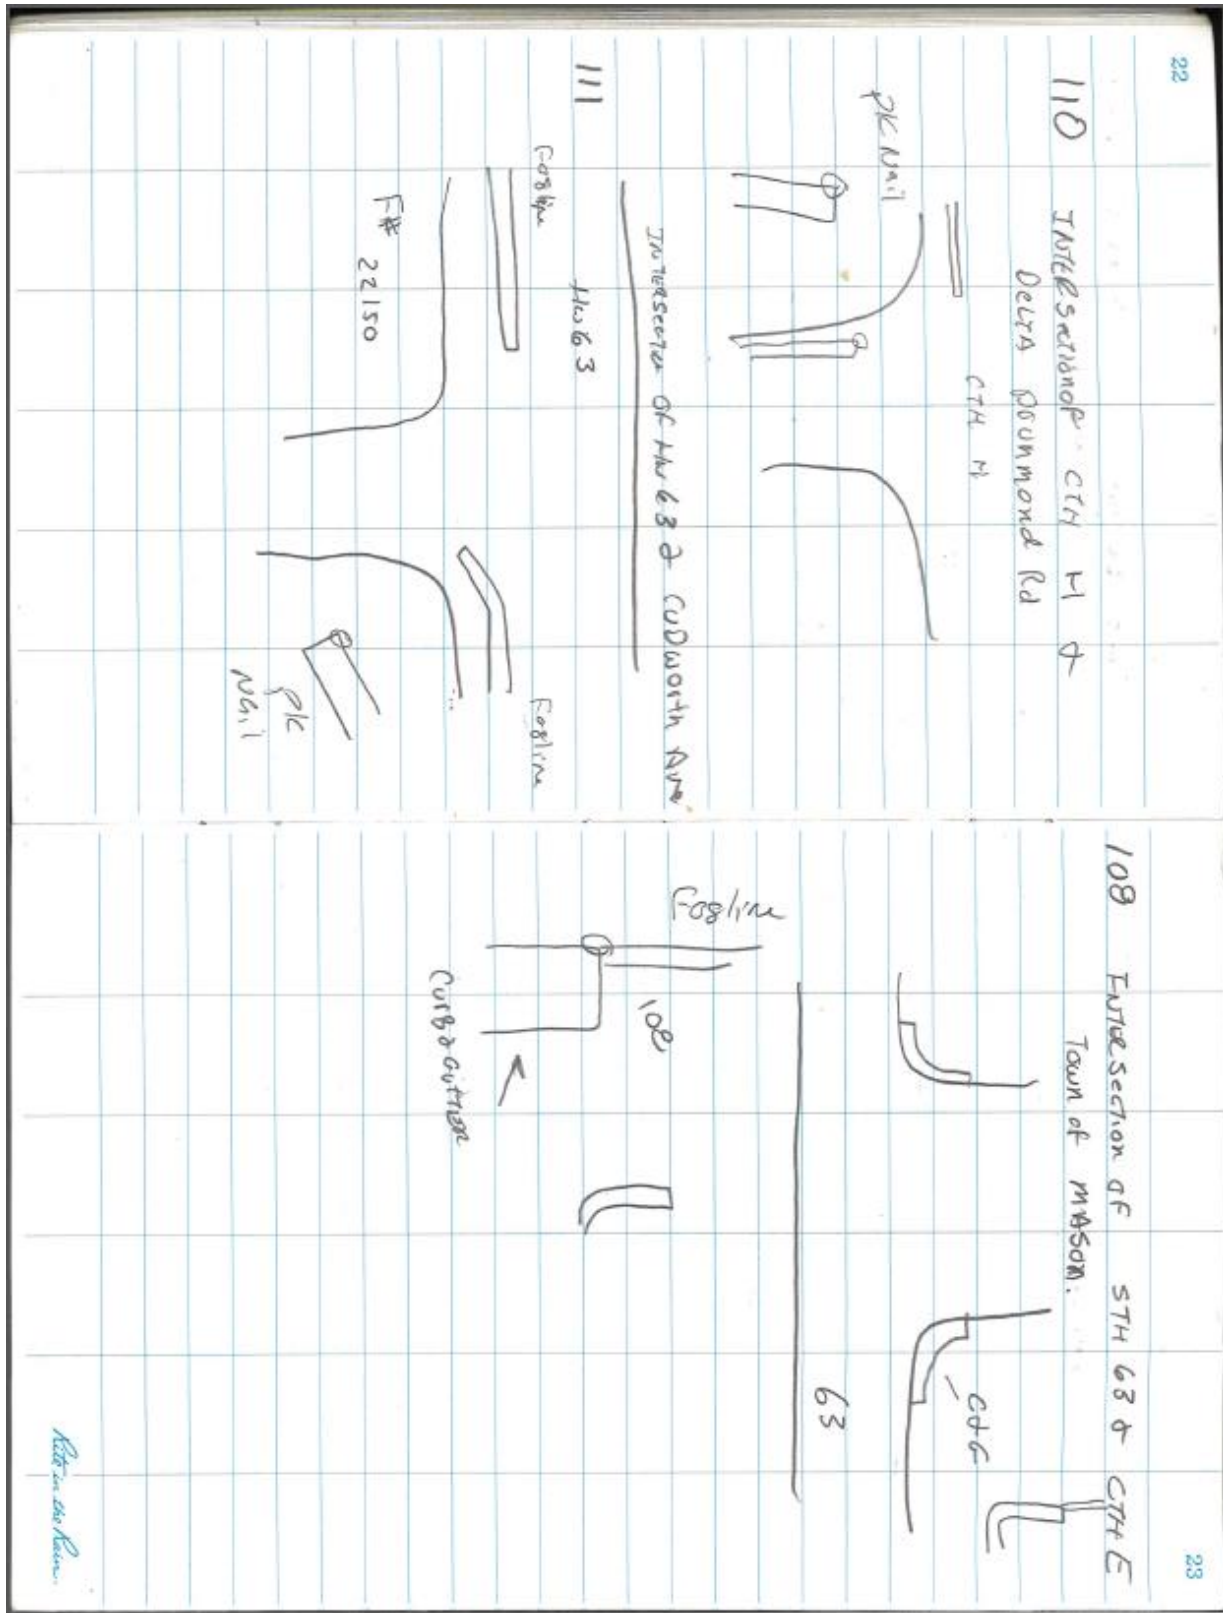 22
110 INTERSection of CTH H &
DELTA Drunmond Rd
CTH H
PK Nail
Intersecter of HW 63 & CUDworth Ave
111
HW 63
Fogline
Fogline
F# 22150
PK
Nail
23
108 INTERSection of STH 63 & CTH E
Town of MASON.
C&G
63
Fogline
108
Curb & Gutter
Rite in the Rain.